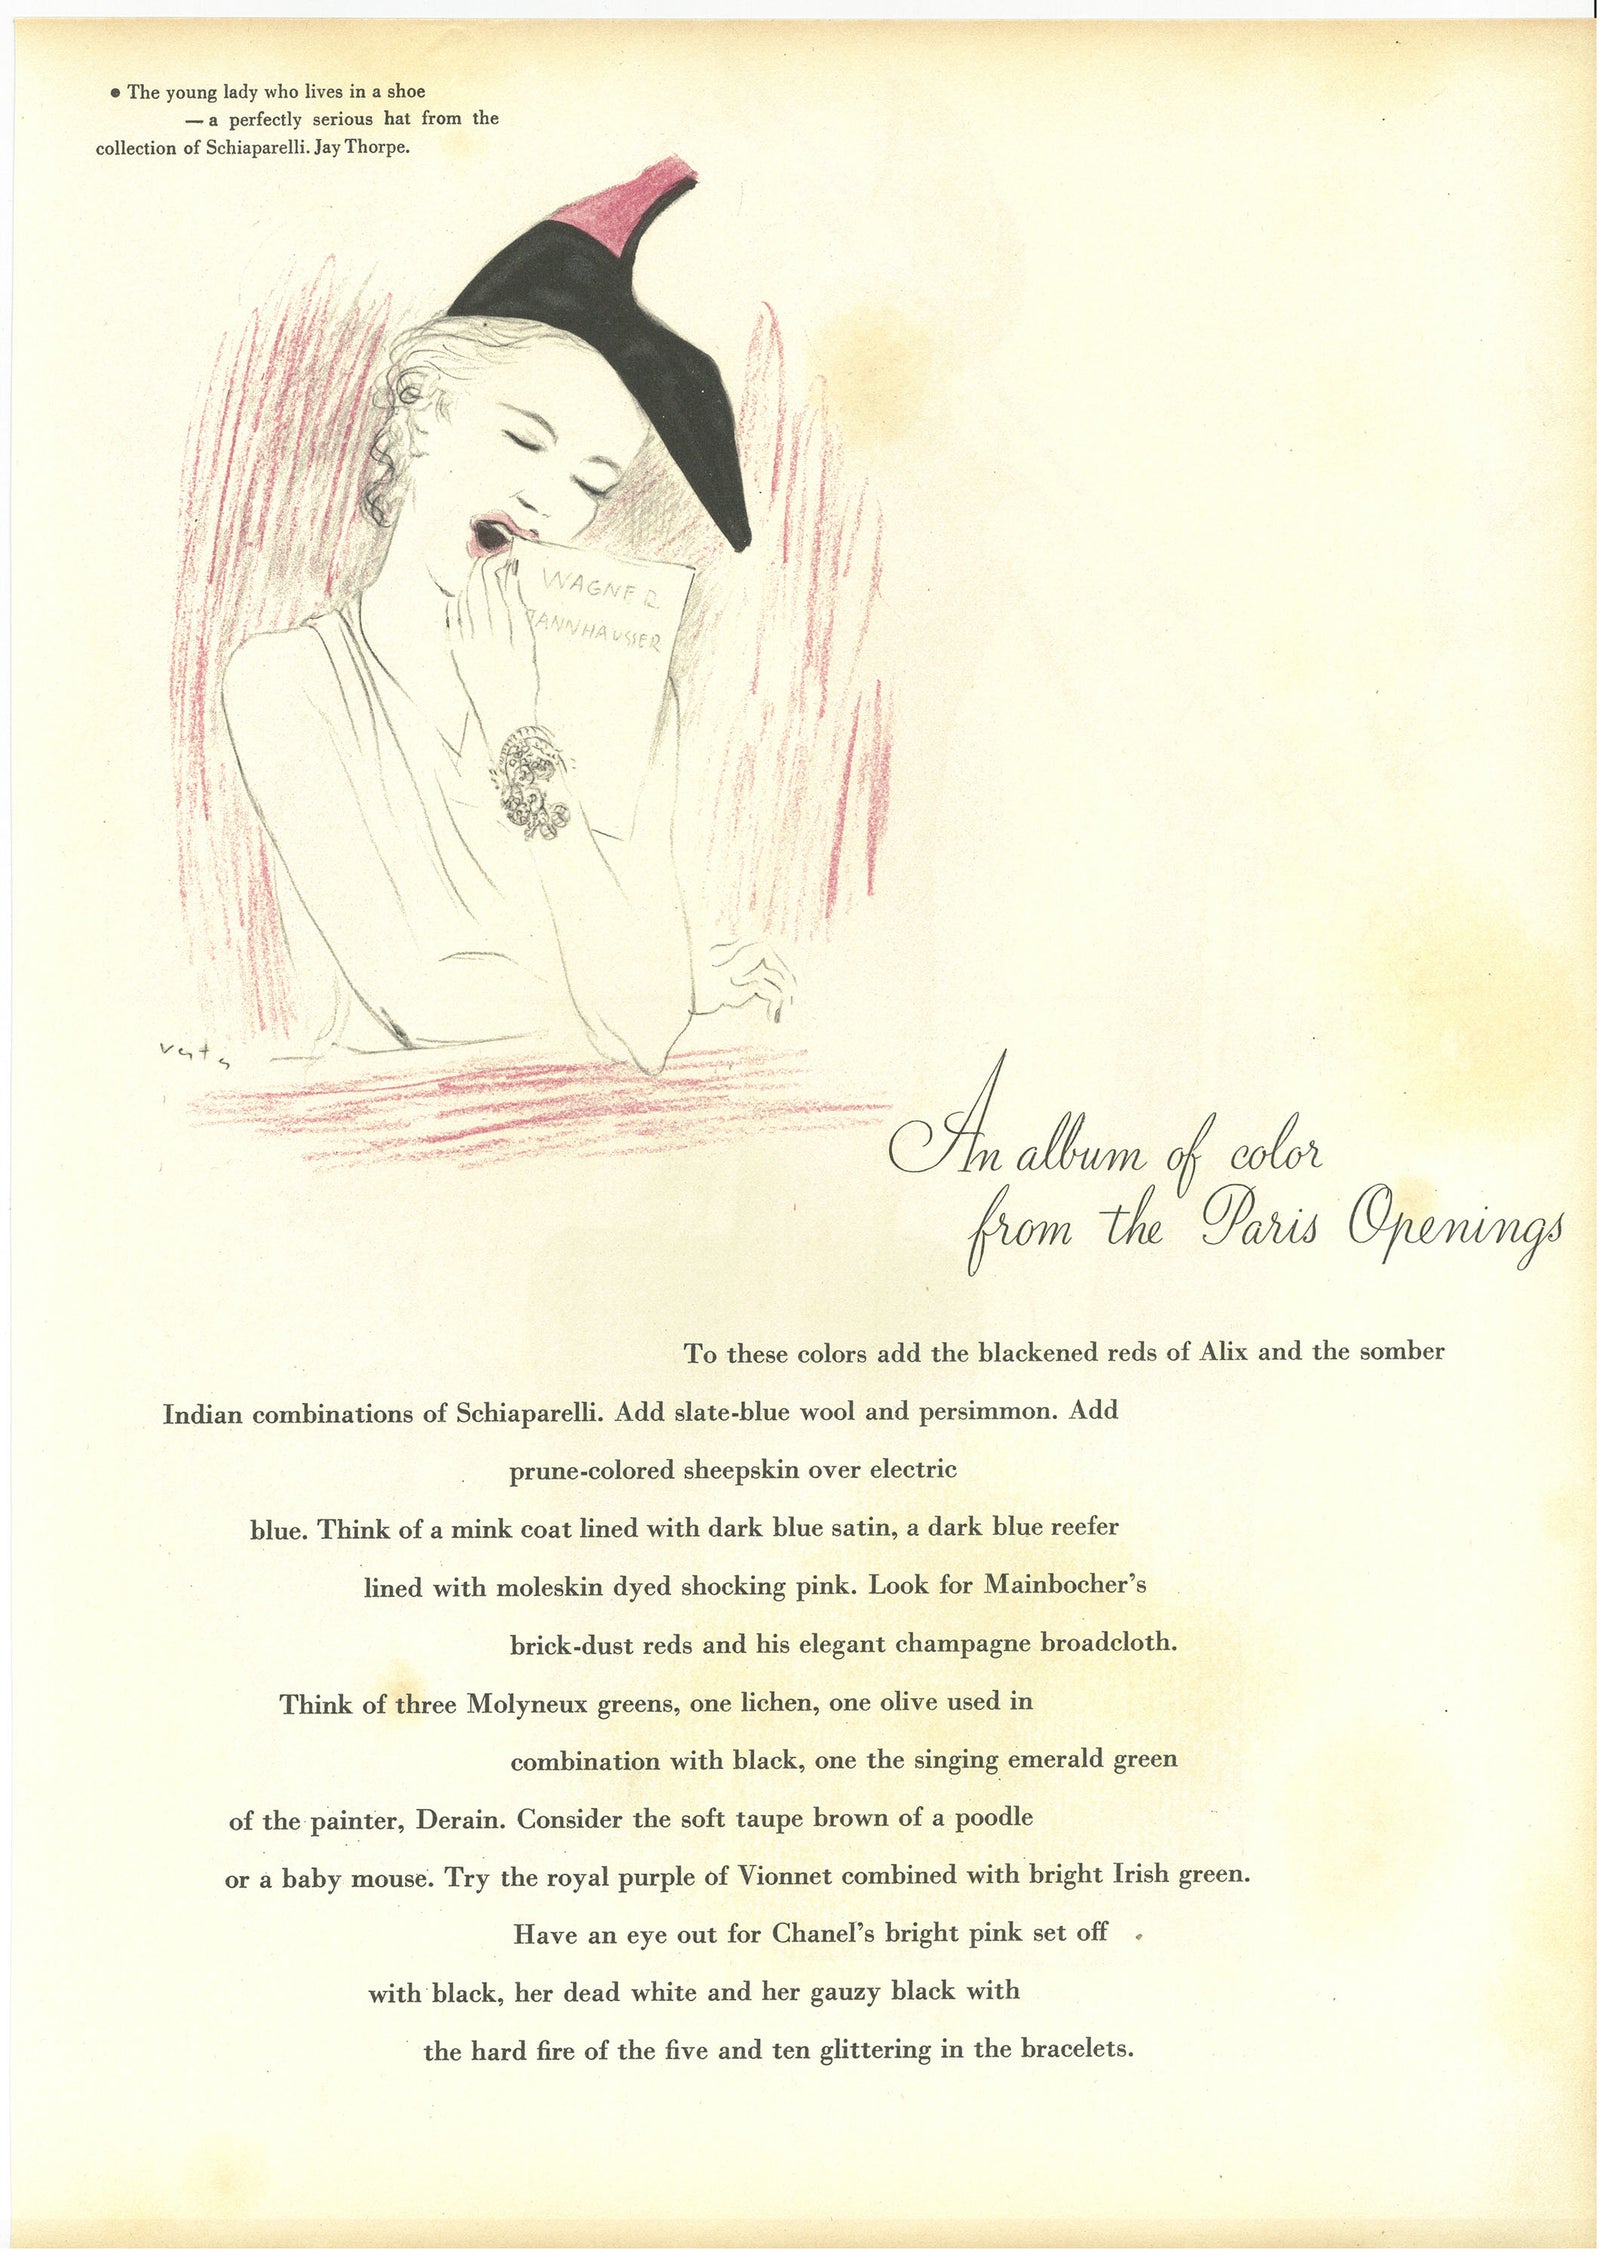 • The young lady who lives in a shoe
— a perfectly serious hat from the
collection of Schiaparelli. Jay Thorpe.
WAGNER
TANNHAUSSER
An album of color
from the Paris Openings
To these colors add the blackened reds of Alix and the somber
Indian combinations of Schiaparelli. Add slate-blue wool and persimmon. Add
prune-colored sheepskin over electric
blue. Think of a mink coat lined with dark blue satin, a dark blue reefer
lined with moleskin dyed shocking pink. Look for Mainbocher's
brick-dust reds and his elegant champagne broadcloth.
Think of three Molyneux greens, one lichen, one olive used in
combination with black, one the singing emerald green
of the painter, Derain. Consider the soft taupe brown of a poodle
or a baby mouse. Try the royal purple of Vionnet combined with bright Irish green.
Have an eye out for Chanel's bright pink set off
with black, her dead white and her gauzy black with
the hard fire of the five and ten glittering in the bracelets.